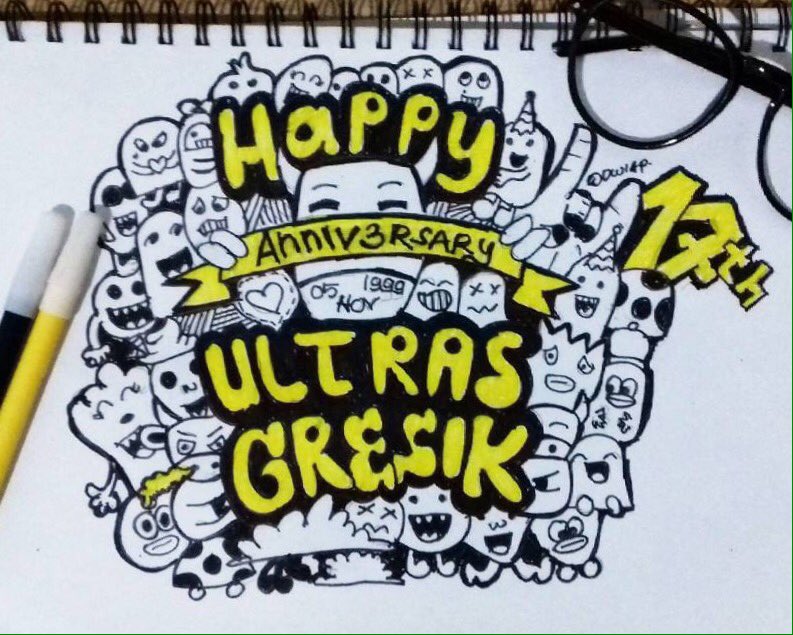 Happy
Anniv3RSARY
05 1999
NOV
ULTRAS
GRESIK
17th